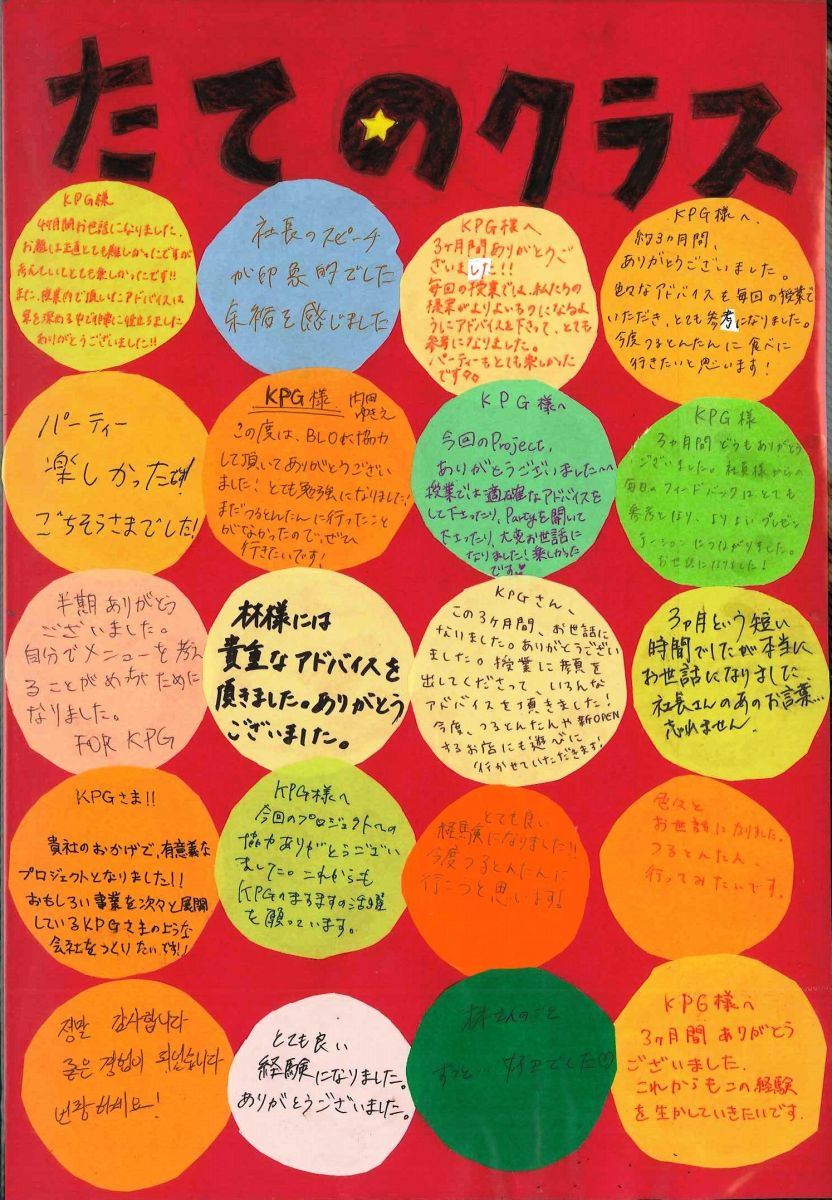 たてのクラス
KPG様
4ヶ月間お世話になりました。
お題は正直とても難しかったですが
考えていてとても楽しかったです!!
また、授業内で頂いたアドバイスは
案を深める中で非常に役立ちました
ありがとうございました!!
社長のスピーチ
が印象的でした
余裕を感じました
KPG様へ
3ヶ月間ありがとうご
ざいました!!
毎回の授業では、私たちの
提案がよりよいものになるよ
うにアドバイスを下さって、とても
参考になりました。
パーティーもとても楽しかった
です
KPG様へ、
約3カ月間、
ありがとうございました。
色々なアドバイスを毎回の授業で
いただき、とても参考になりました。
今度つるとんたんに食べに
行きたいと思います!
パーティー
楽しかったです!
ごちそうさまでした!
KPG様 内田
ゆきえ
この度は、BLOに協力
して頂いてありがとうござい
ました!とても勉強になりました!
まだつるとんたんに行ったこと
がなかったので、ぜひ
行きたいです!
KPG様へ
今回のProject,
ありがとうございました〜
授業では適確なアドバイスを
して下さったり、Partyを開いて
下さったり、大変お世話に
なりました!楽しかった
です♡
KPG様
3ヵ月間どうもありがとう
ございました。社員様からの
毎回のフィードバックは、とても
参考となり、よりよいプレゼン
テーションにつながりました。
お世話になりました!
半期ありがとう
ございました。
自分でメニューを考え
ることがめっちゃために
なりました。
FOR KPG
林様には
貴重なアドバイスを
頂きました。ありがとう
ございました。
KPGさん、
この3ヶ月間、お世話に
なりました。ありがとうござい
ました。授業に顔を
出してくださって、いろんな
アドバイスを頂きました!
今度、つるとんたんや新OPEN
するお店にも遊びに
行かせていただきます!
3ヵ月という短い
時間でしたが本当に
お世話になりました
社長さんのあのお言葉…
忘れません。
KPGさま!!
貴社のおかげで、有意義な
プロジェクトとなりました!!
おもしろい事業を次々と展開
しているKPGさまのような
会社をつくりたいです!!
KPG様へ
今回のプロジェクトへの
協力ありがとうござい
ました。これからも
KPGのますますの活躍
を願っています。
とても良い
経験になりました!!
今度つるとんたんに
行こうと思います!
色々と
お世話になりました。
つるとんたん、
行ってみたいです。
정말 감사합니다
좋은 경험이 되었습니다
번창하세요!
とても良い
経験になりました。
ありがとうございました。
林さんのこと
ずっと…好きでした♡
KPG様へ
3ヶ月間 ありがとう
ございました。
これからもこの経験
を生かしていきたいです。